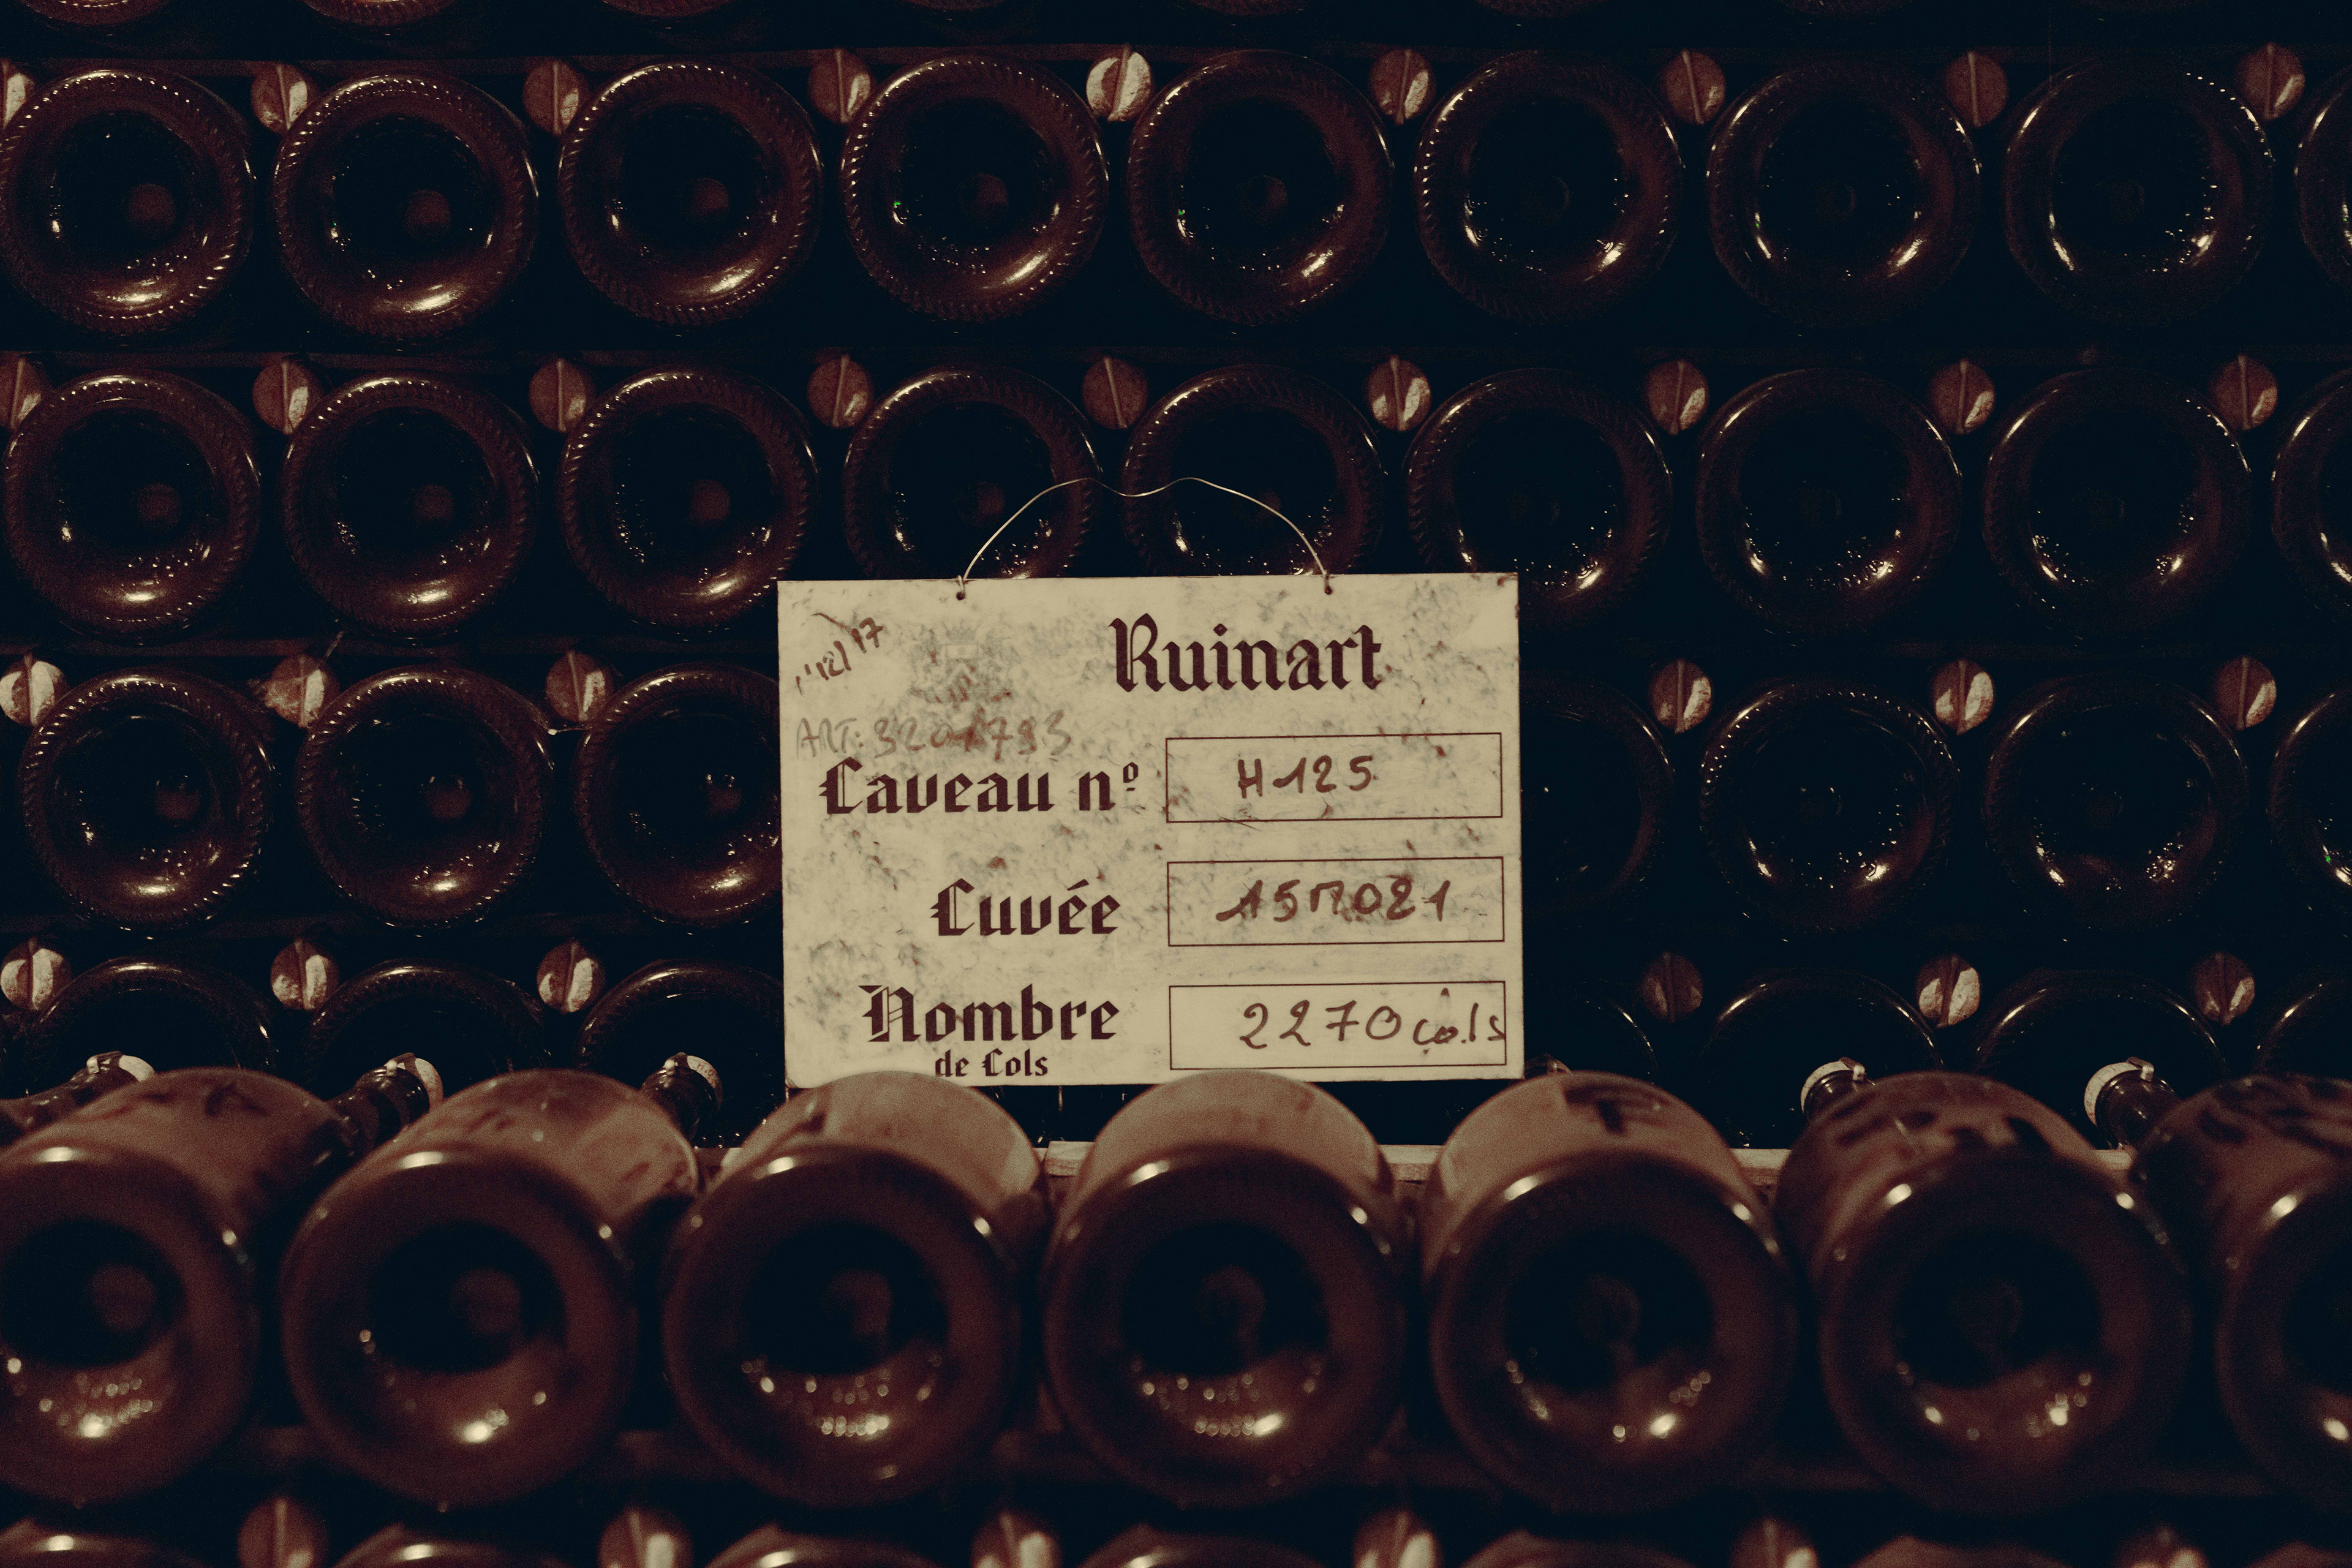 Ruinart
12/17
ART: 3201793
Caveau nº H125
Cuvée 15M021
Nombre 2270 cols
de Cols